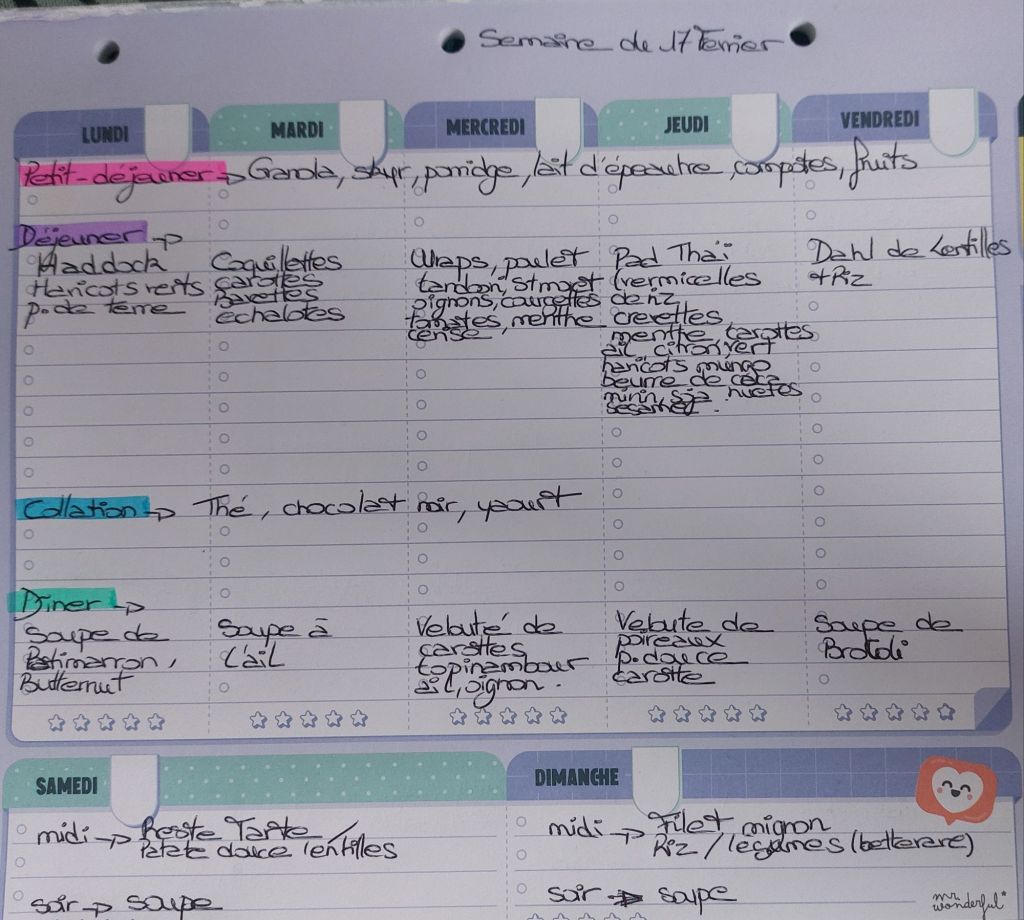 Semaine de 17 Fevrier
LUNDI MARDI MERCREDI JEUDI VENDREDI
Petit-déjeuner → Ganola, skyr, porridge, lait d'épeautre, compotes, fruits
Déjeuner →
Haddock
Haricots verts
p. de terre
Coquillettes
carottes
Pavettes
échalotes
Wraps, poulet
tandoori, St moret
oignons, courgettes
tomates, menthe
Pad Thaï
(vermicelles
de riz
crevettes
menthe carottes
ail, citron vert
haricots mungo
beurre de caca
mirin, soja huetes
Dahl de Lentilles
+ Riz
Collation → Thé, chocolat noir, yaourt
Diner →
Soupe de
Potimarron,
Butternut
Soupe à
L'ail
Velouté de
carottes
topinambour
ail, oignon.
Veloute de
poireaux
p. douce
carotte
Soupe de
Brocoli
SAMEDI
midi → Reste Tarte /
Patate douce lentilles
soir → soupe
DIMANCHE
midi → Filet mignon
Riz / légumes (betterave)
soir → soupe
mr.
wonderful*